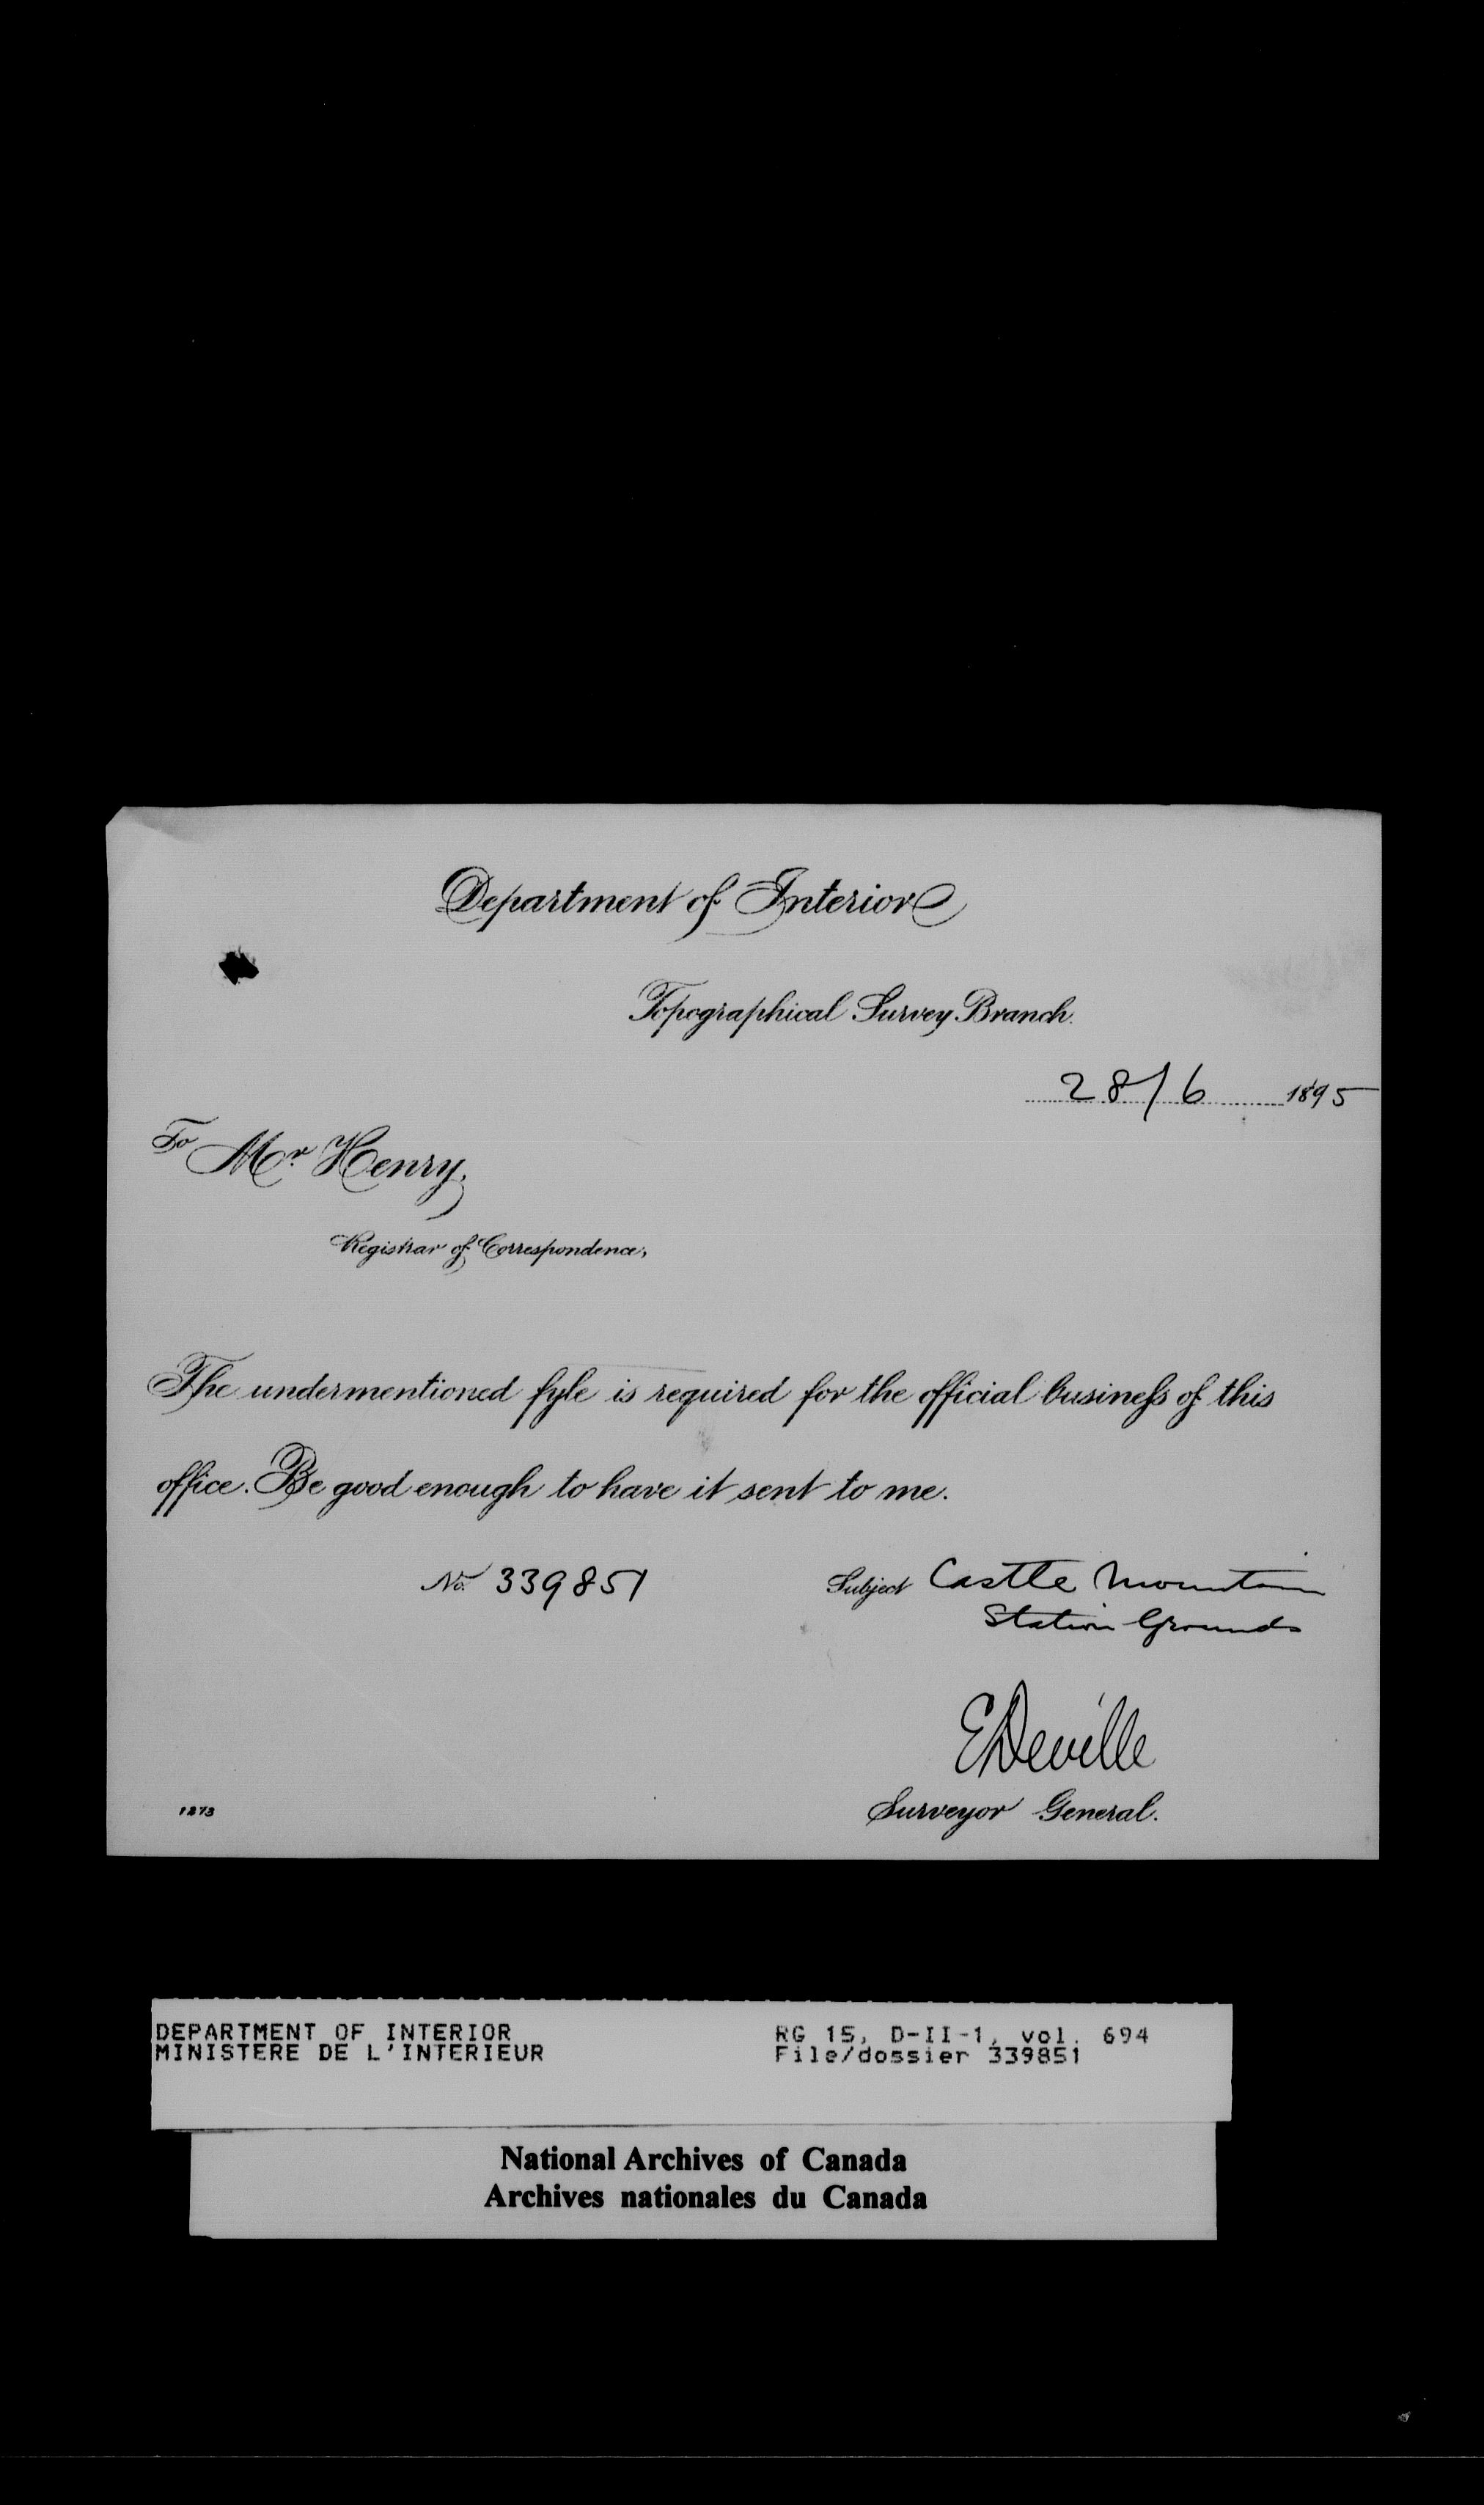 Department of Interior
Topographical Survey Branch.
28/6 1895
To Mr. Henry,
Registrar of Correspondence,
The undermentioned fyle is required for the official business of this
office. Be good enough to have it sent to me.
No. 339851 Subject Castle Mountain
Station Grounds
E Deville
Surveyor General.
1273
DEPARTMENT OF INTERIOR RG 15, D-II-1, vol. 694
MINISTERE DE L'INTERIEUR File/dossier 339851
National Archives of Canada
Archives nationales du Canada